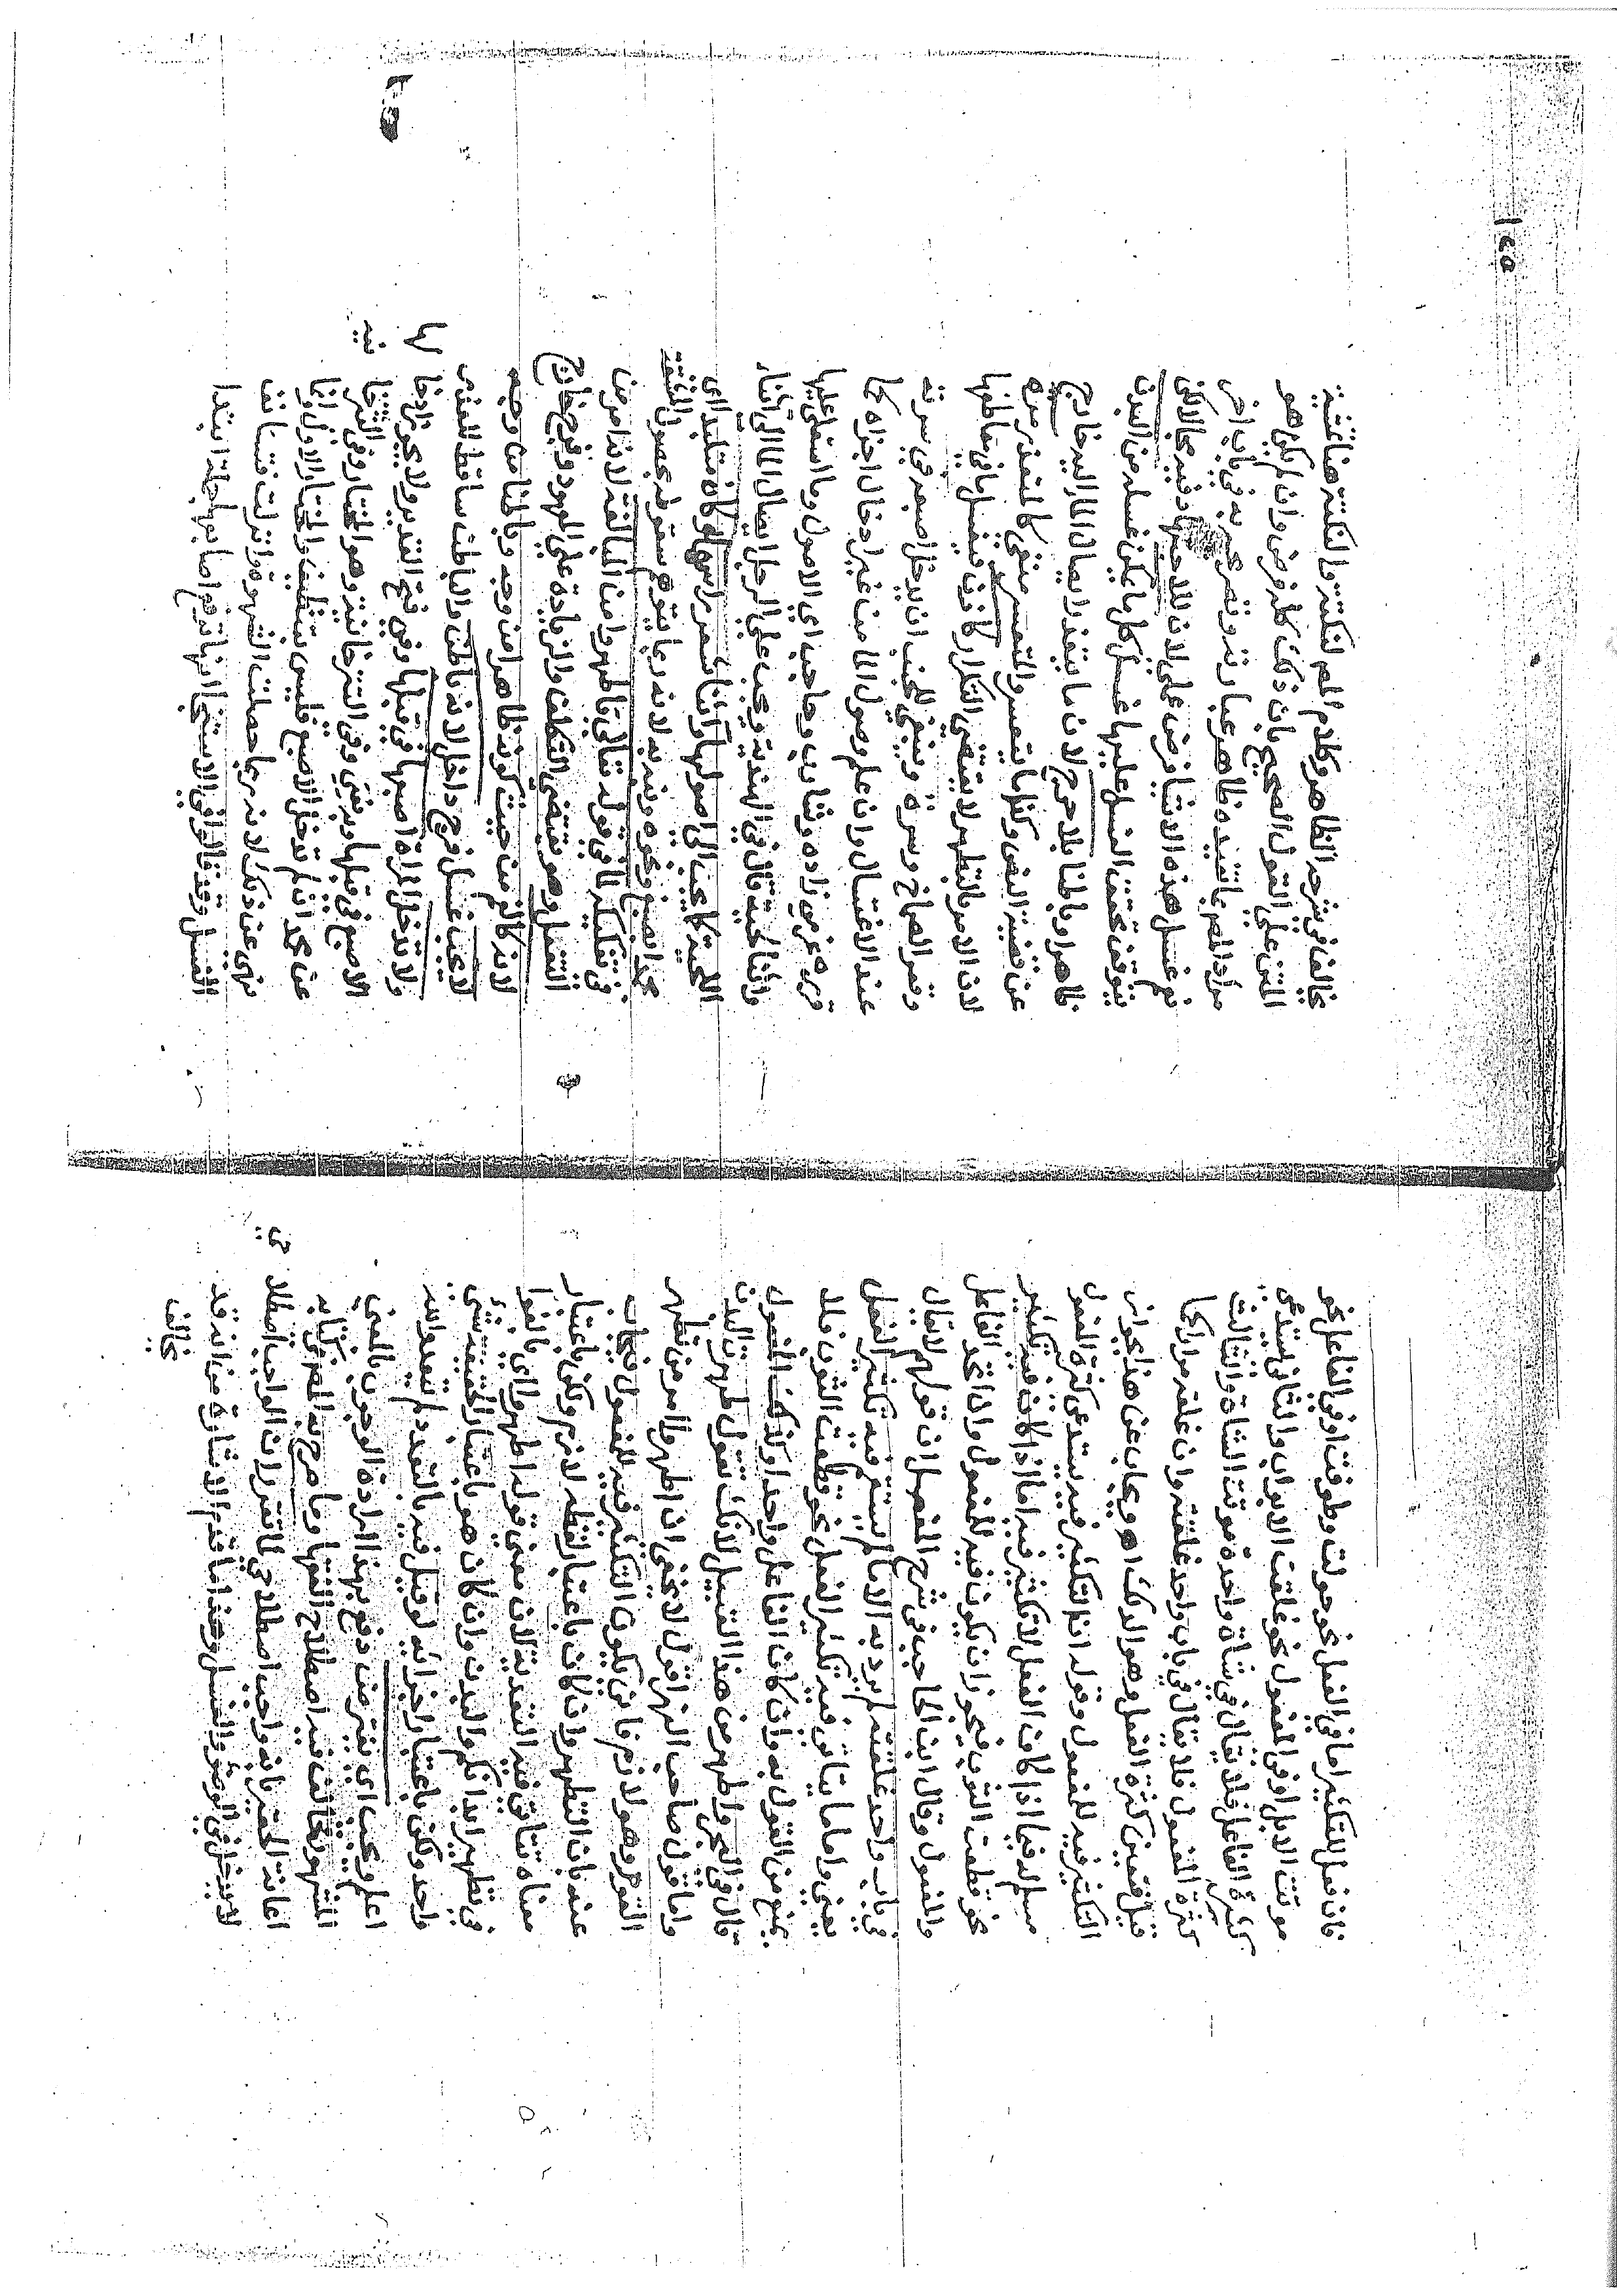 فان فعل للتكثير اما في الفعل نحو جولت وطوفت او في الفاعل نحو
موتت الابل او في المفعول نحو غلقت الابواب والثاني يستدعي
كثرة الفاعل فلا يقال في شاة واحدة موتت الشاة والثالث
كثرة المفعول فلا يقال في باب واحد غلقته وان غلقته مرارا كما
قيل فتعين كثرة الفعل وهو الدلك اه ويجاب عن هذا بجواز
التكثير فيه للمفعول وقوله انما التكثير فيه يستدعي كثرة المفعول
مسلم لا فيما اذا كان الفعل لا تكثير فيه اما اذا كان فيه تكثير
نحو قطعت الثوب فيجوز ان يكون فيه للمفعول واذا اتحد الفاعل
والمفعول وقال ابن الحاجب في شرح المفصل ان قولهم لا يقال
في باب واحد غلقته لم يرد به الا ما لم يستقم فيه تكثير الفعل
يعني واما ما يتأتى فيه تكثير الفعل نحو قطعت الثوب فلا
يمنع من القول به وان كان الفاعل واحدا وكذلك المفعول
قال في البحر واطهر من هذا القبيل لانك تقول طهرت البدن
واما قول صاحب النهر اقول لا يخفى ان اطهر والامر من تطهر
القوم وهو لازم فاني يكون التكثير فيه للمفعول فيجاب
عنه بان التطهر وان كان باعتبار لفظه لازم ولكن باعتبار
معناه تتأتى فيه التعدية لان معنى قوله اطهروا اي بالغوا
في تطهير ابدانكم والبدن وان كان هو باعتبار الحقيقة شئ
واحد ولكن باعتبار اجزائه لو قيل فيه بالتعدد لم يبعد والله
اعلم ويجب اي يفترض دفع بهذا ارادة الوجوب بالمعنى
المشهور المخالف فيه اصطلاح الفقها وما صرح به المص في كتابه
اعانة الحقير بانه واجب اصطلاحي لما تقرر ان الواجب اصطلاحا
لا يدخل في الوضوء والغسل وهذا ما قدم الاشارة من انه قد
يخالف
١٤٥
يخالف في شرحه الظاهر وكلام المص لنكتة والنكتة هنا
المتن على القول الصحيح بان ذلك كله فرض وان لم يكن هو
مراد المص باعتقيده ظاهر عبارته وتصريحه به في باب اخر
نعم غسل هذه الاشيا فرض على لان للاحتياط فيه مجالا لكن
يتوقف تحقق الغسل عليها غسل كل ما يمكن غسله من البدن
ظاهرا وباطنا بلا حرج لان ما يتعذر ايصال الماء اليه خارج
عن قضية النص وكذا ما يتعسر والمتعسر منفي كالمتعذر مرة
لان الامر بالتطهر لا يقتضي التكرار كاذن فيغسل باقي باطنها
وقعر الصماخ وسرة وينبغي للجنب ان يدخل اصبعه في سرته
عند الاغتسال وان علم وصول الماء من غير ادخال اجزاه كما
قرره عزمي زاده وشارب وحاجب اي الاصول وما استعلى عليها
واثنا لحيته قال في الهندية ويجب على الرجل ايصال الماء الى اثناء
اللحية كما يجب الى اصولها واثنا شعر راس ولو كان متلبدا اي
بحد الصمغ ونحوه ونبه به لانه ربما يتوهم سقوطه بحصول المشقة
في تفكيكه لما في قوله تعالى فاطهروا من المبالغة لانه امر من
التفعل وهو يقتضي التكلف والزيادة على المعهود وفرج خارج
لانه كالفم من حيث كونه ظاهرا من وجه وباطنا من وجه
لا يجب غسل فرج داخل لانه باطن والباطن ساقط للتعذر
ولا تدخل المراة اصبعها في قبلها وفي فتح القدير ولا يجب ادخالها
الاصبع في قبلها وبه يفتى وفي التترخانية وهو المختار وفي الشرنبلالية
عن محمد ان لم تدخل الاصبع فليس بتنظيف والمختار الاول وانما
نهى عن ذلك لانه ربما حصلت الشهوة وانزلت فتستأنف
الغسل وقد قالوا في الاستنجا انها تدعو اصابعها جملة ابتدا